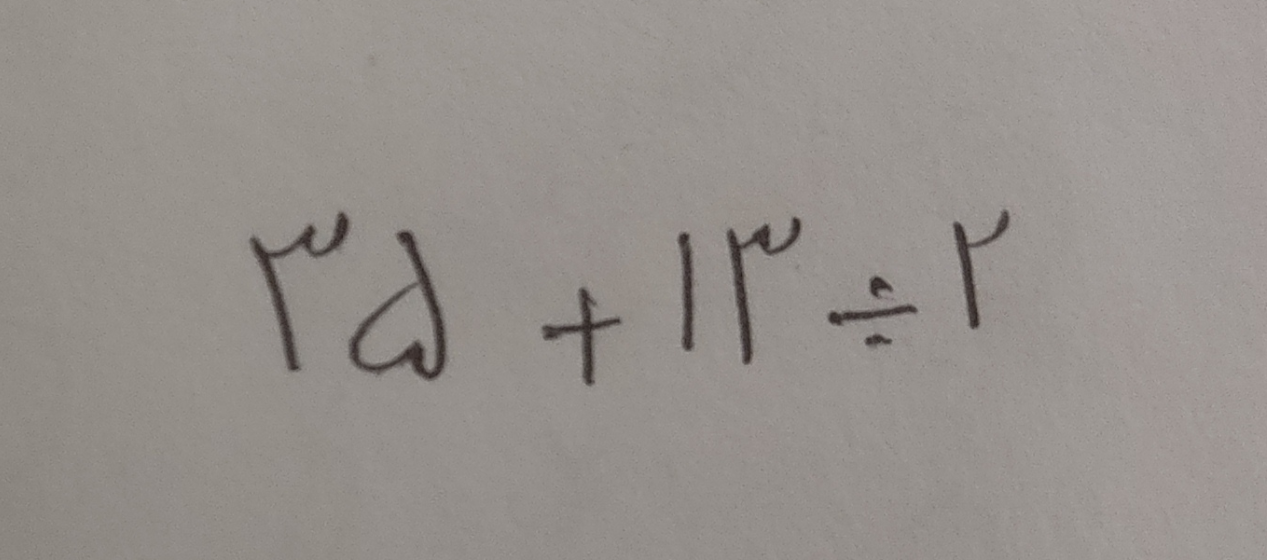 ۳۵ + ۱۳ ÷ ۲